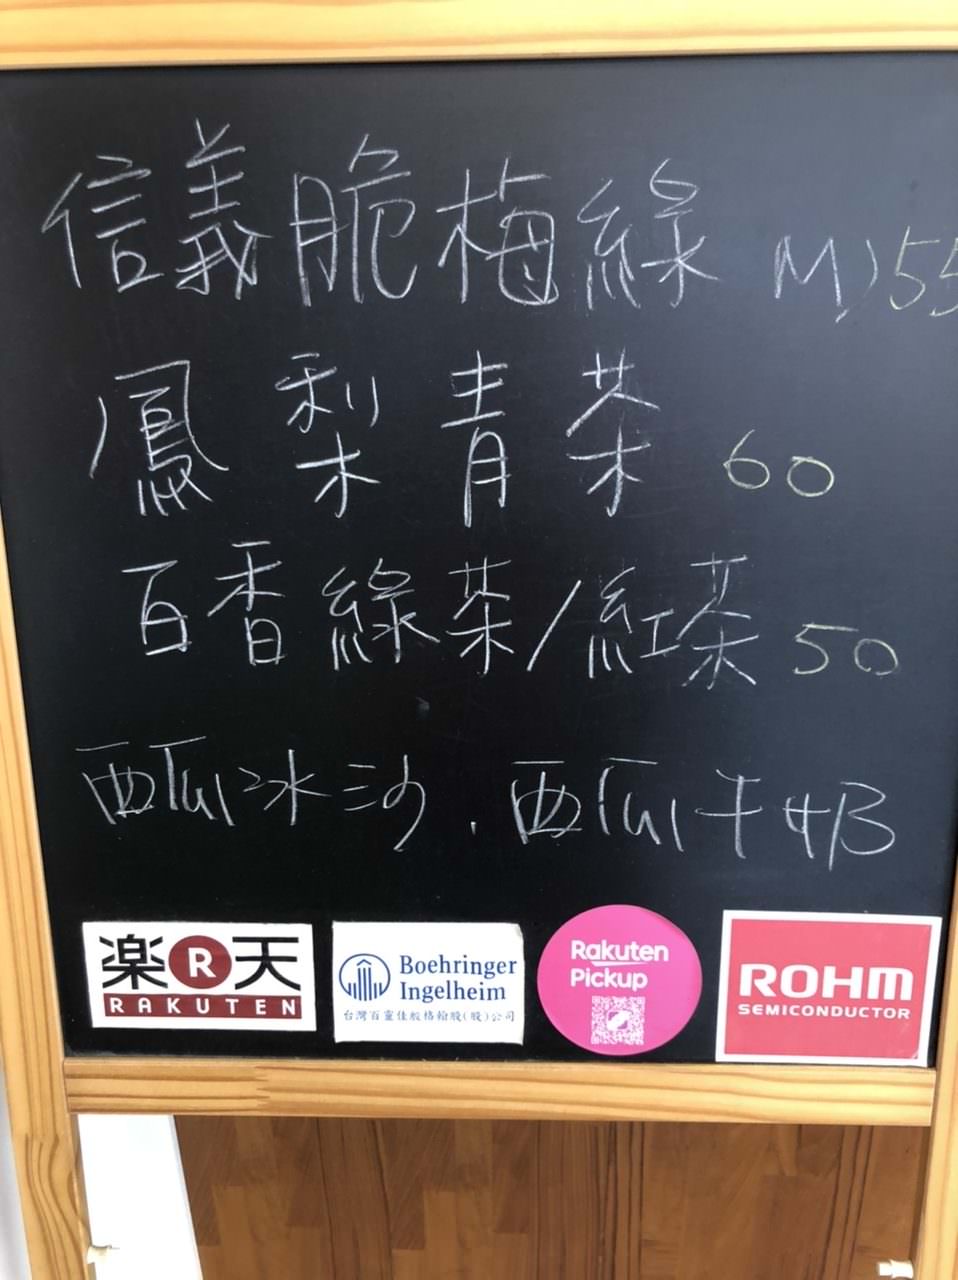 信義脆梅綠 M)55
鳳梨青茶 60
百香綠茶/紅茶 50
西瓜冰沙.西瓜牛奶
楽R天
RAKUTEN
Boehringer
Ingelheim
台灣百靈佳殷格翰股(股)公司
Rakuten
Pickup
ROHM
SEMICONDUCTOR